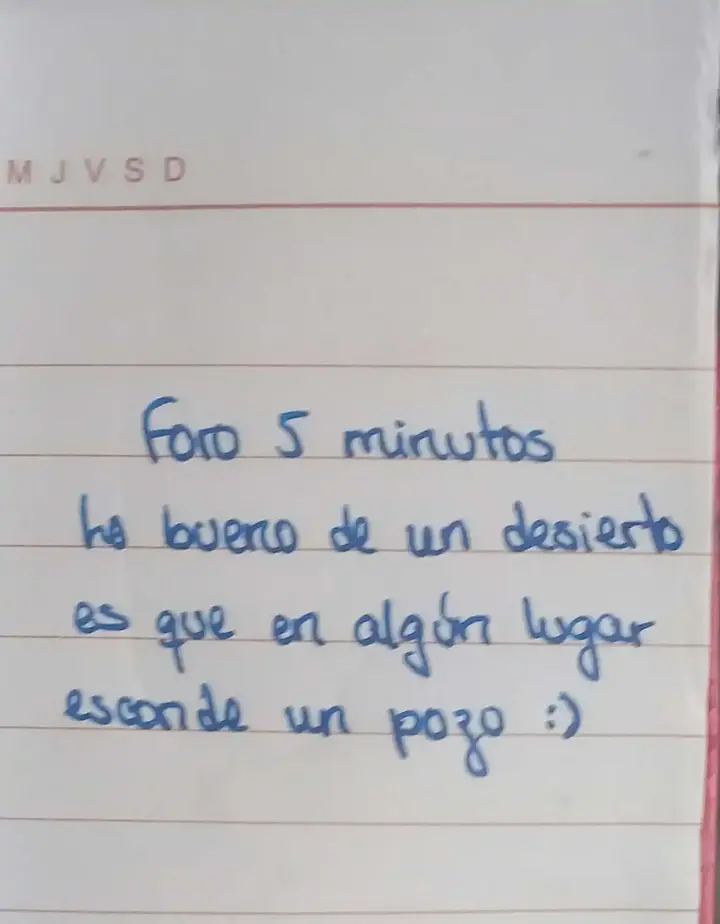 M J V S D
Foro 5 minutos
Lo bueno de un desierto
es que en algún lugar
esconde un pozo :)